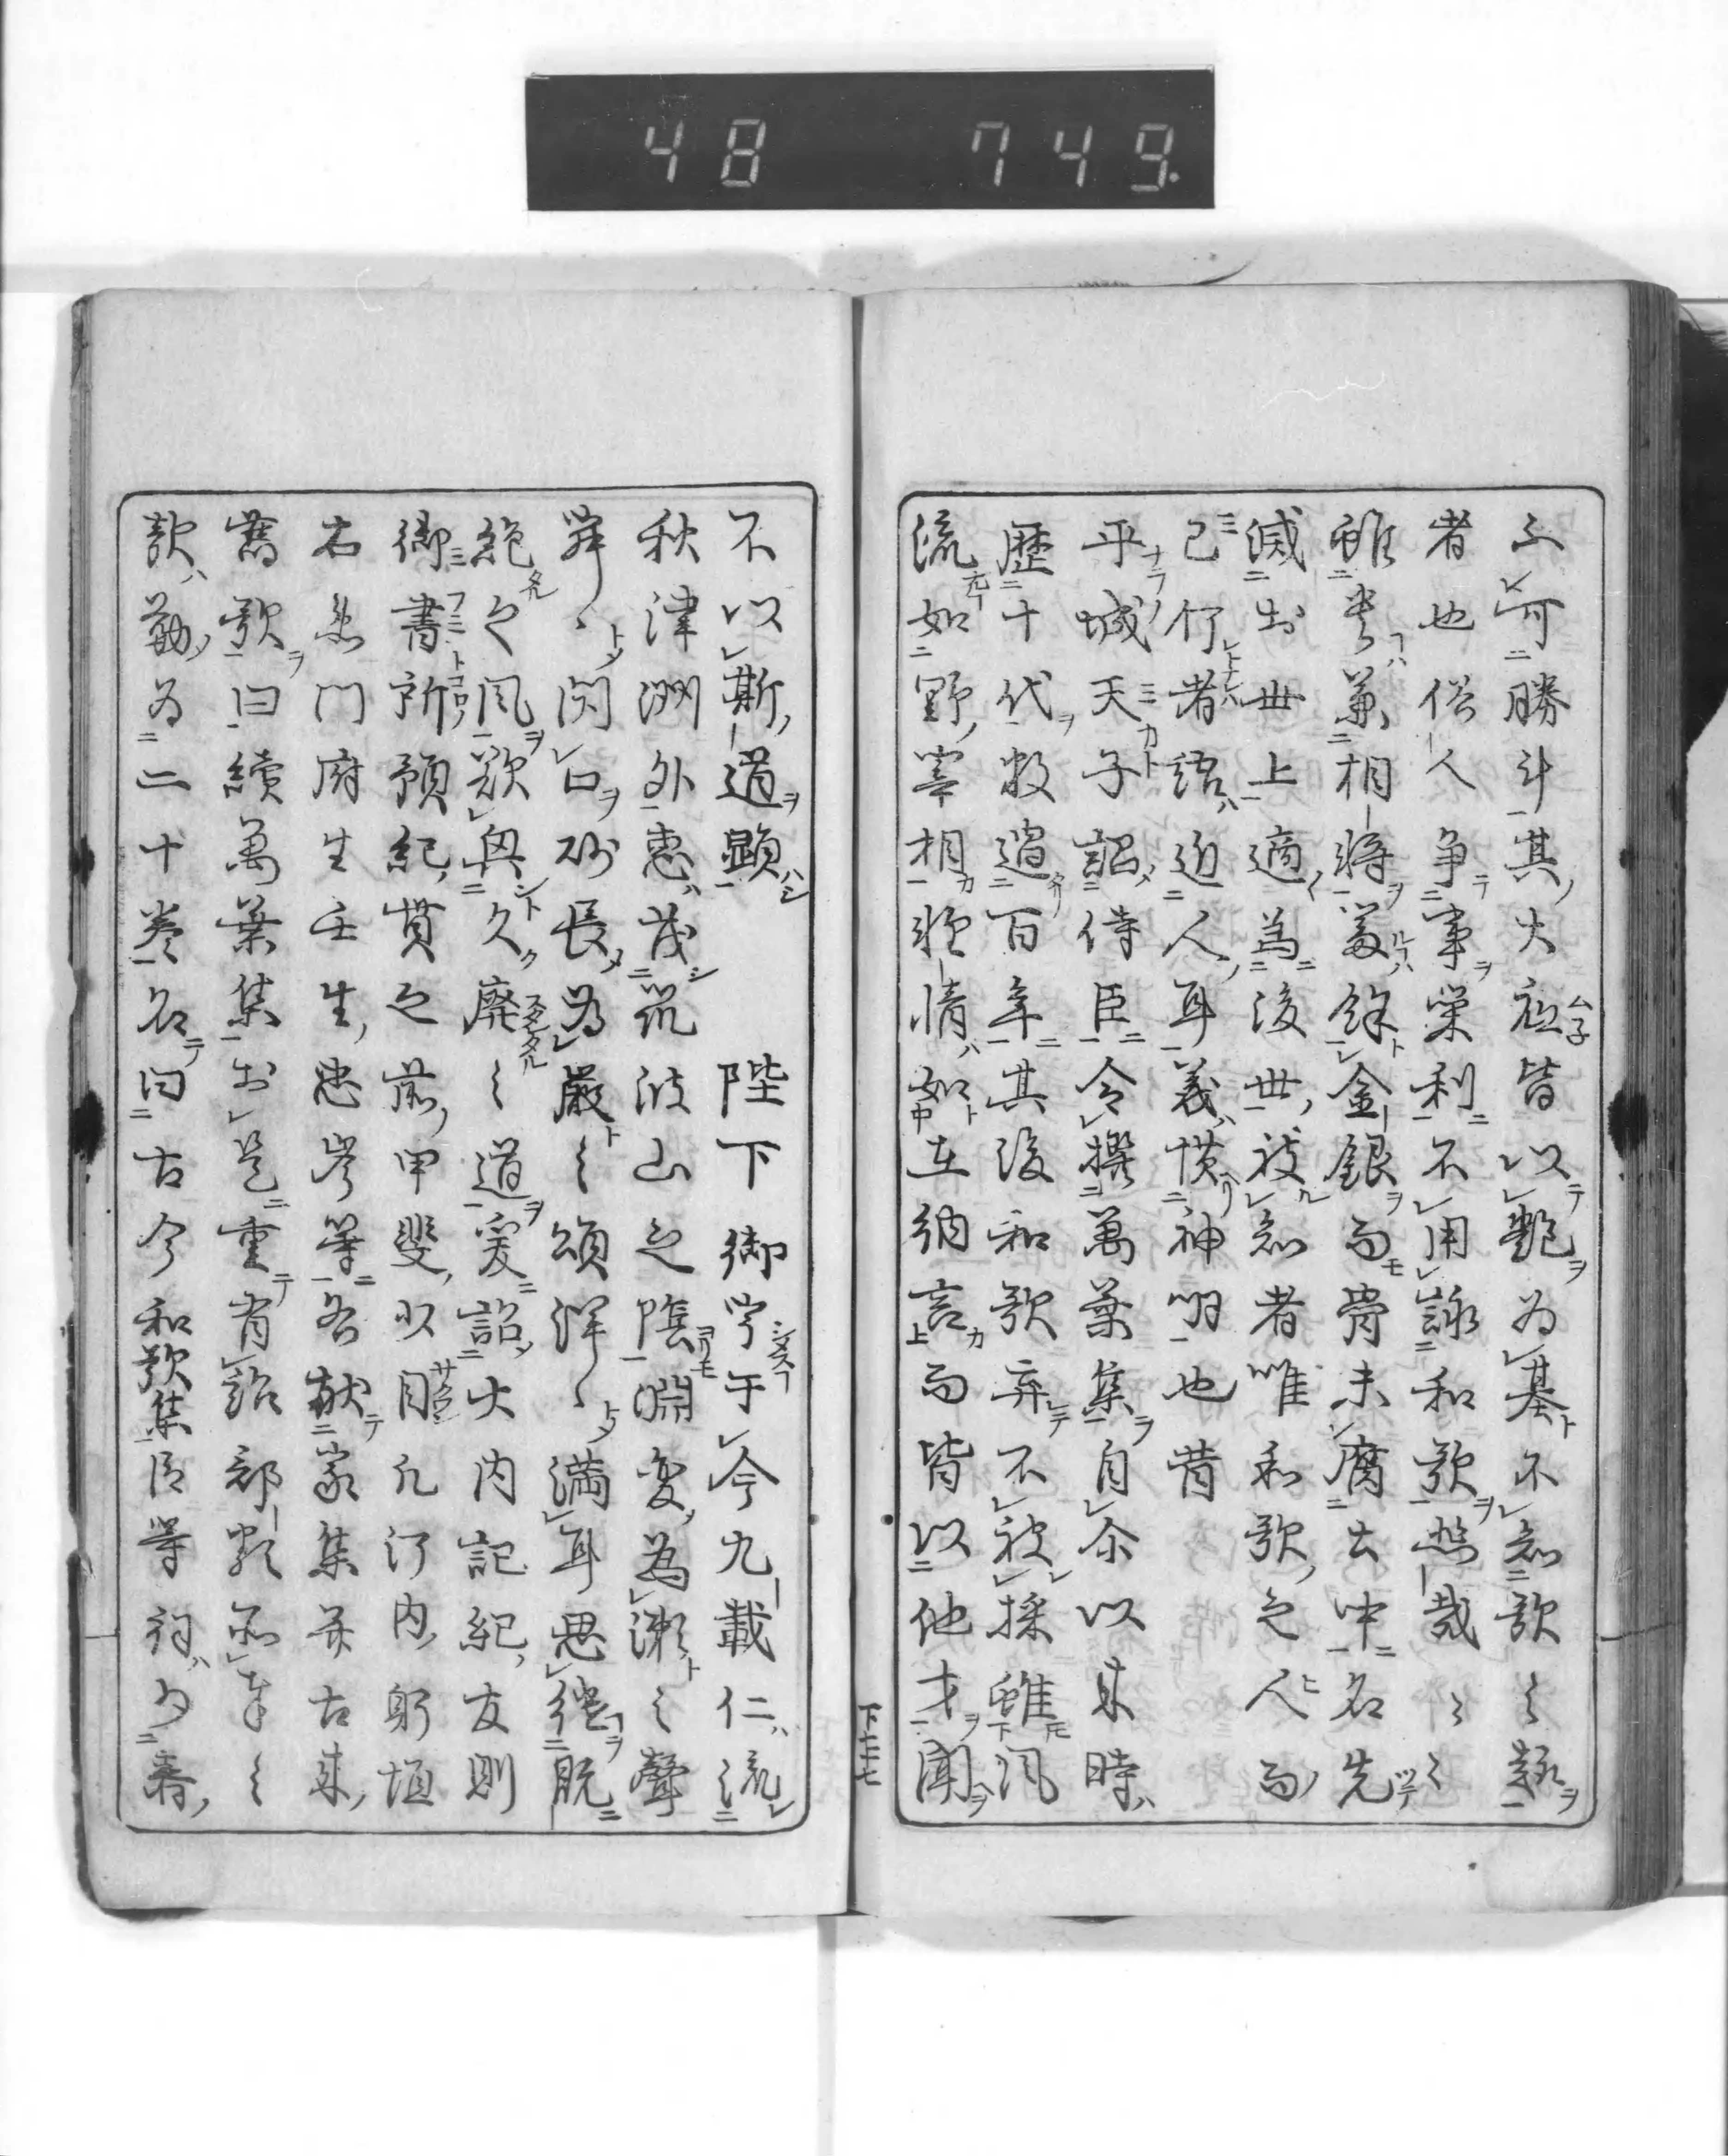 48 749.
不可勝計其大底皆以艶為基不知歌之趣
者也俗人争事栄利不用詠和歌悲哉々々
雖貴兼相将富餘金銀而骨未腐土中名先
滅於世上適為後世被知者唯和歌之人而
已何者語近人耳義慣神明也昔
平城天子詔侍臣令撰萬葉集自尓以来時
歴十代数過百年其後和歌弃不被採雖風
流如野宰相雅情如在納言而皆以他才聞
下二十七
不以斯道顕 陛下御宇于今九載仁流
秋津洲外恵茂筑波山之陰淵変為瀬之聲
寂々閉口砂長為巌之頌洋々満耳思継既
絶之風欲興久廃之道爰詔大内記紀友則
御書所預紀貫之前甲斐少目凡河内躬恒
右衛門府生壬生忠岑等各献家集并古来
舊歌曰續萬葉集於是重有詔部類所奉之
歌勒為二十巻名曰古今和歌集臣等詞少春